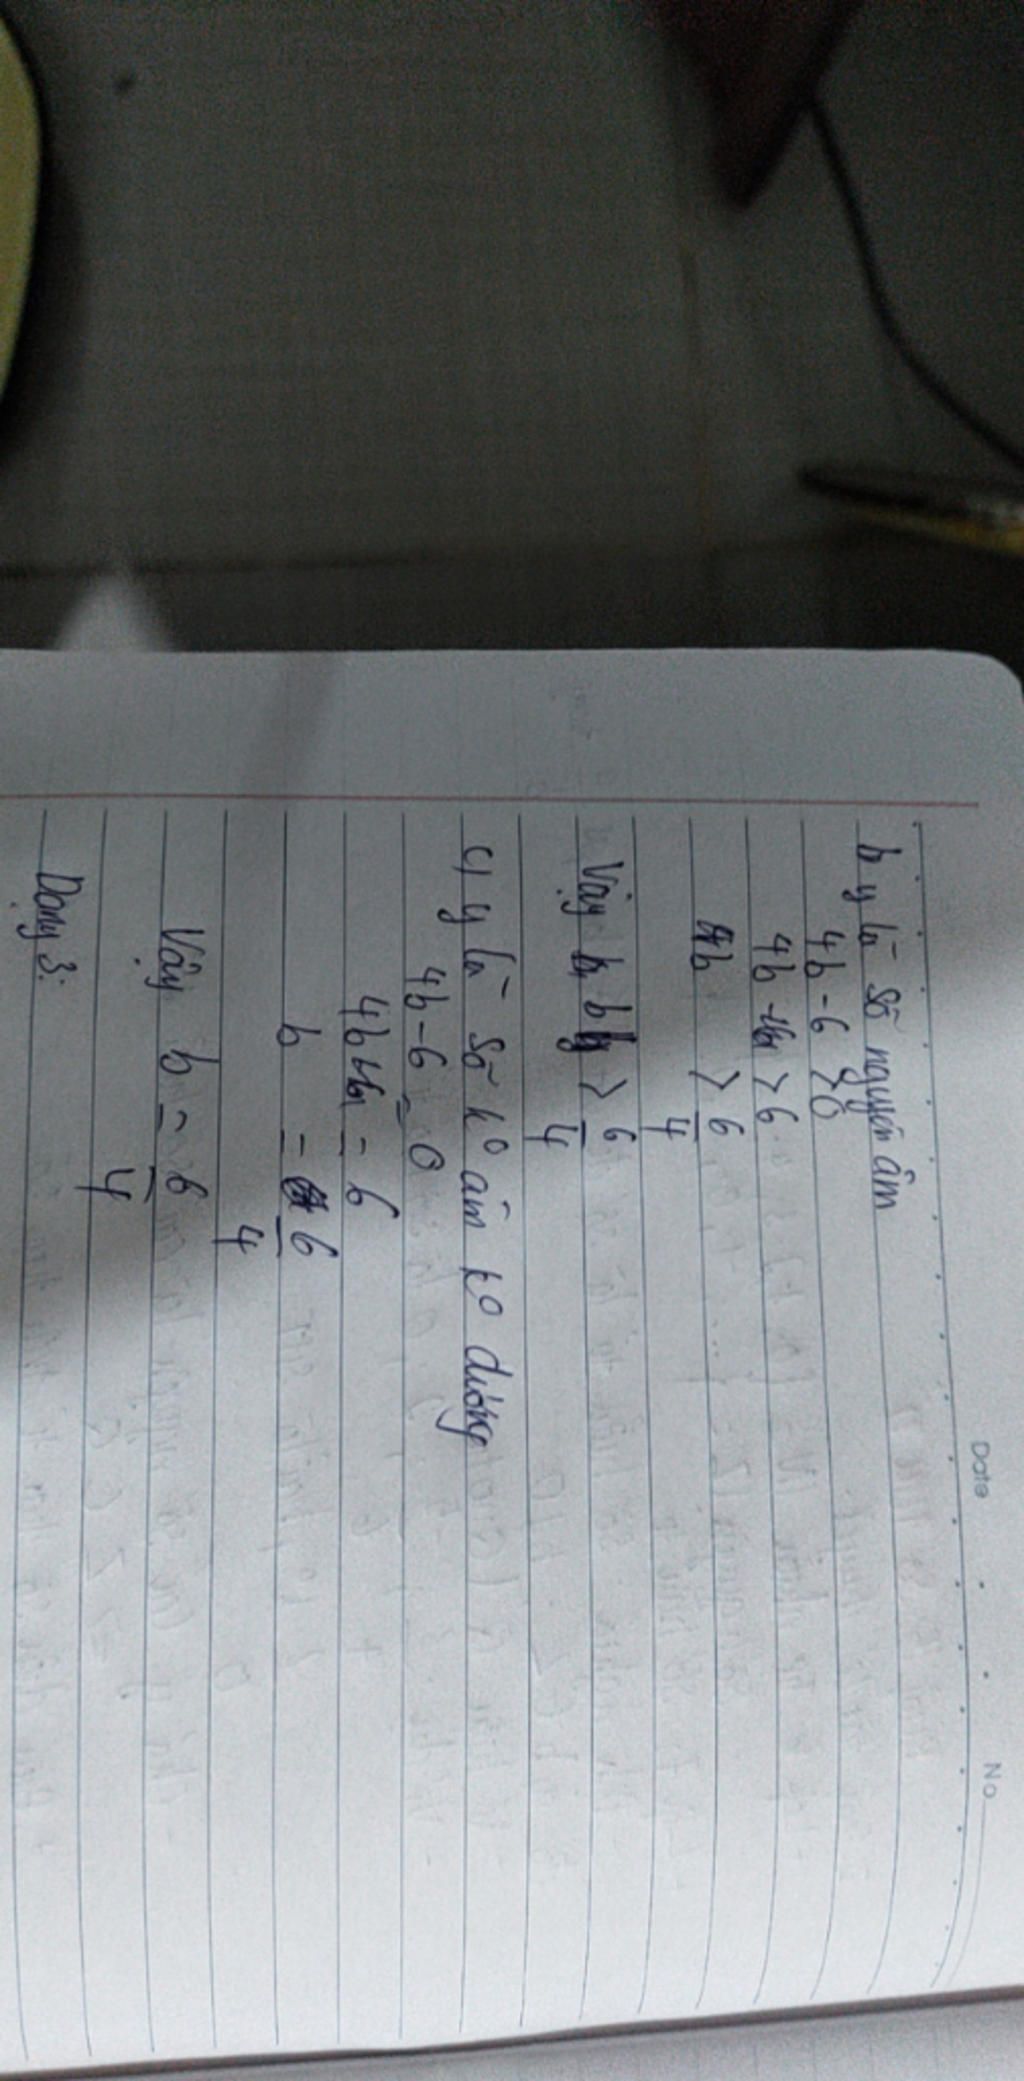 Date No
b y là số nguyên âm
4b - 6 > 0
4b > 6
b > 6
4
Vậy b > 6
4
c) y là số k⁰ âm k⁰ dương
4b - 6 = 0
4b = 6
b = 6
4
Vậy b = 6
4
Dạng 3: